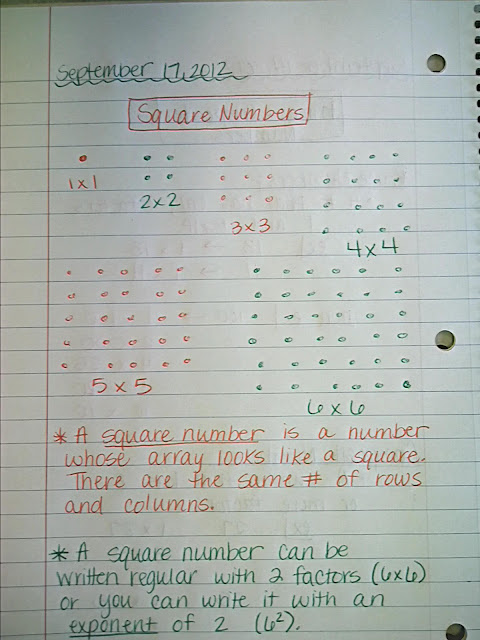 September 17, 2012
Square Numbers
1x1
2x2
3x3
4x4
5x5
6x6
* A square number is a number
whose array looks like a square.
There are the same # of rows
and columns.
* A square number can be
written regular with 2 factors (6x6)
or you can write it with an
exponent of 2 (6²).